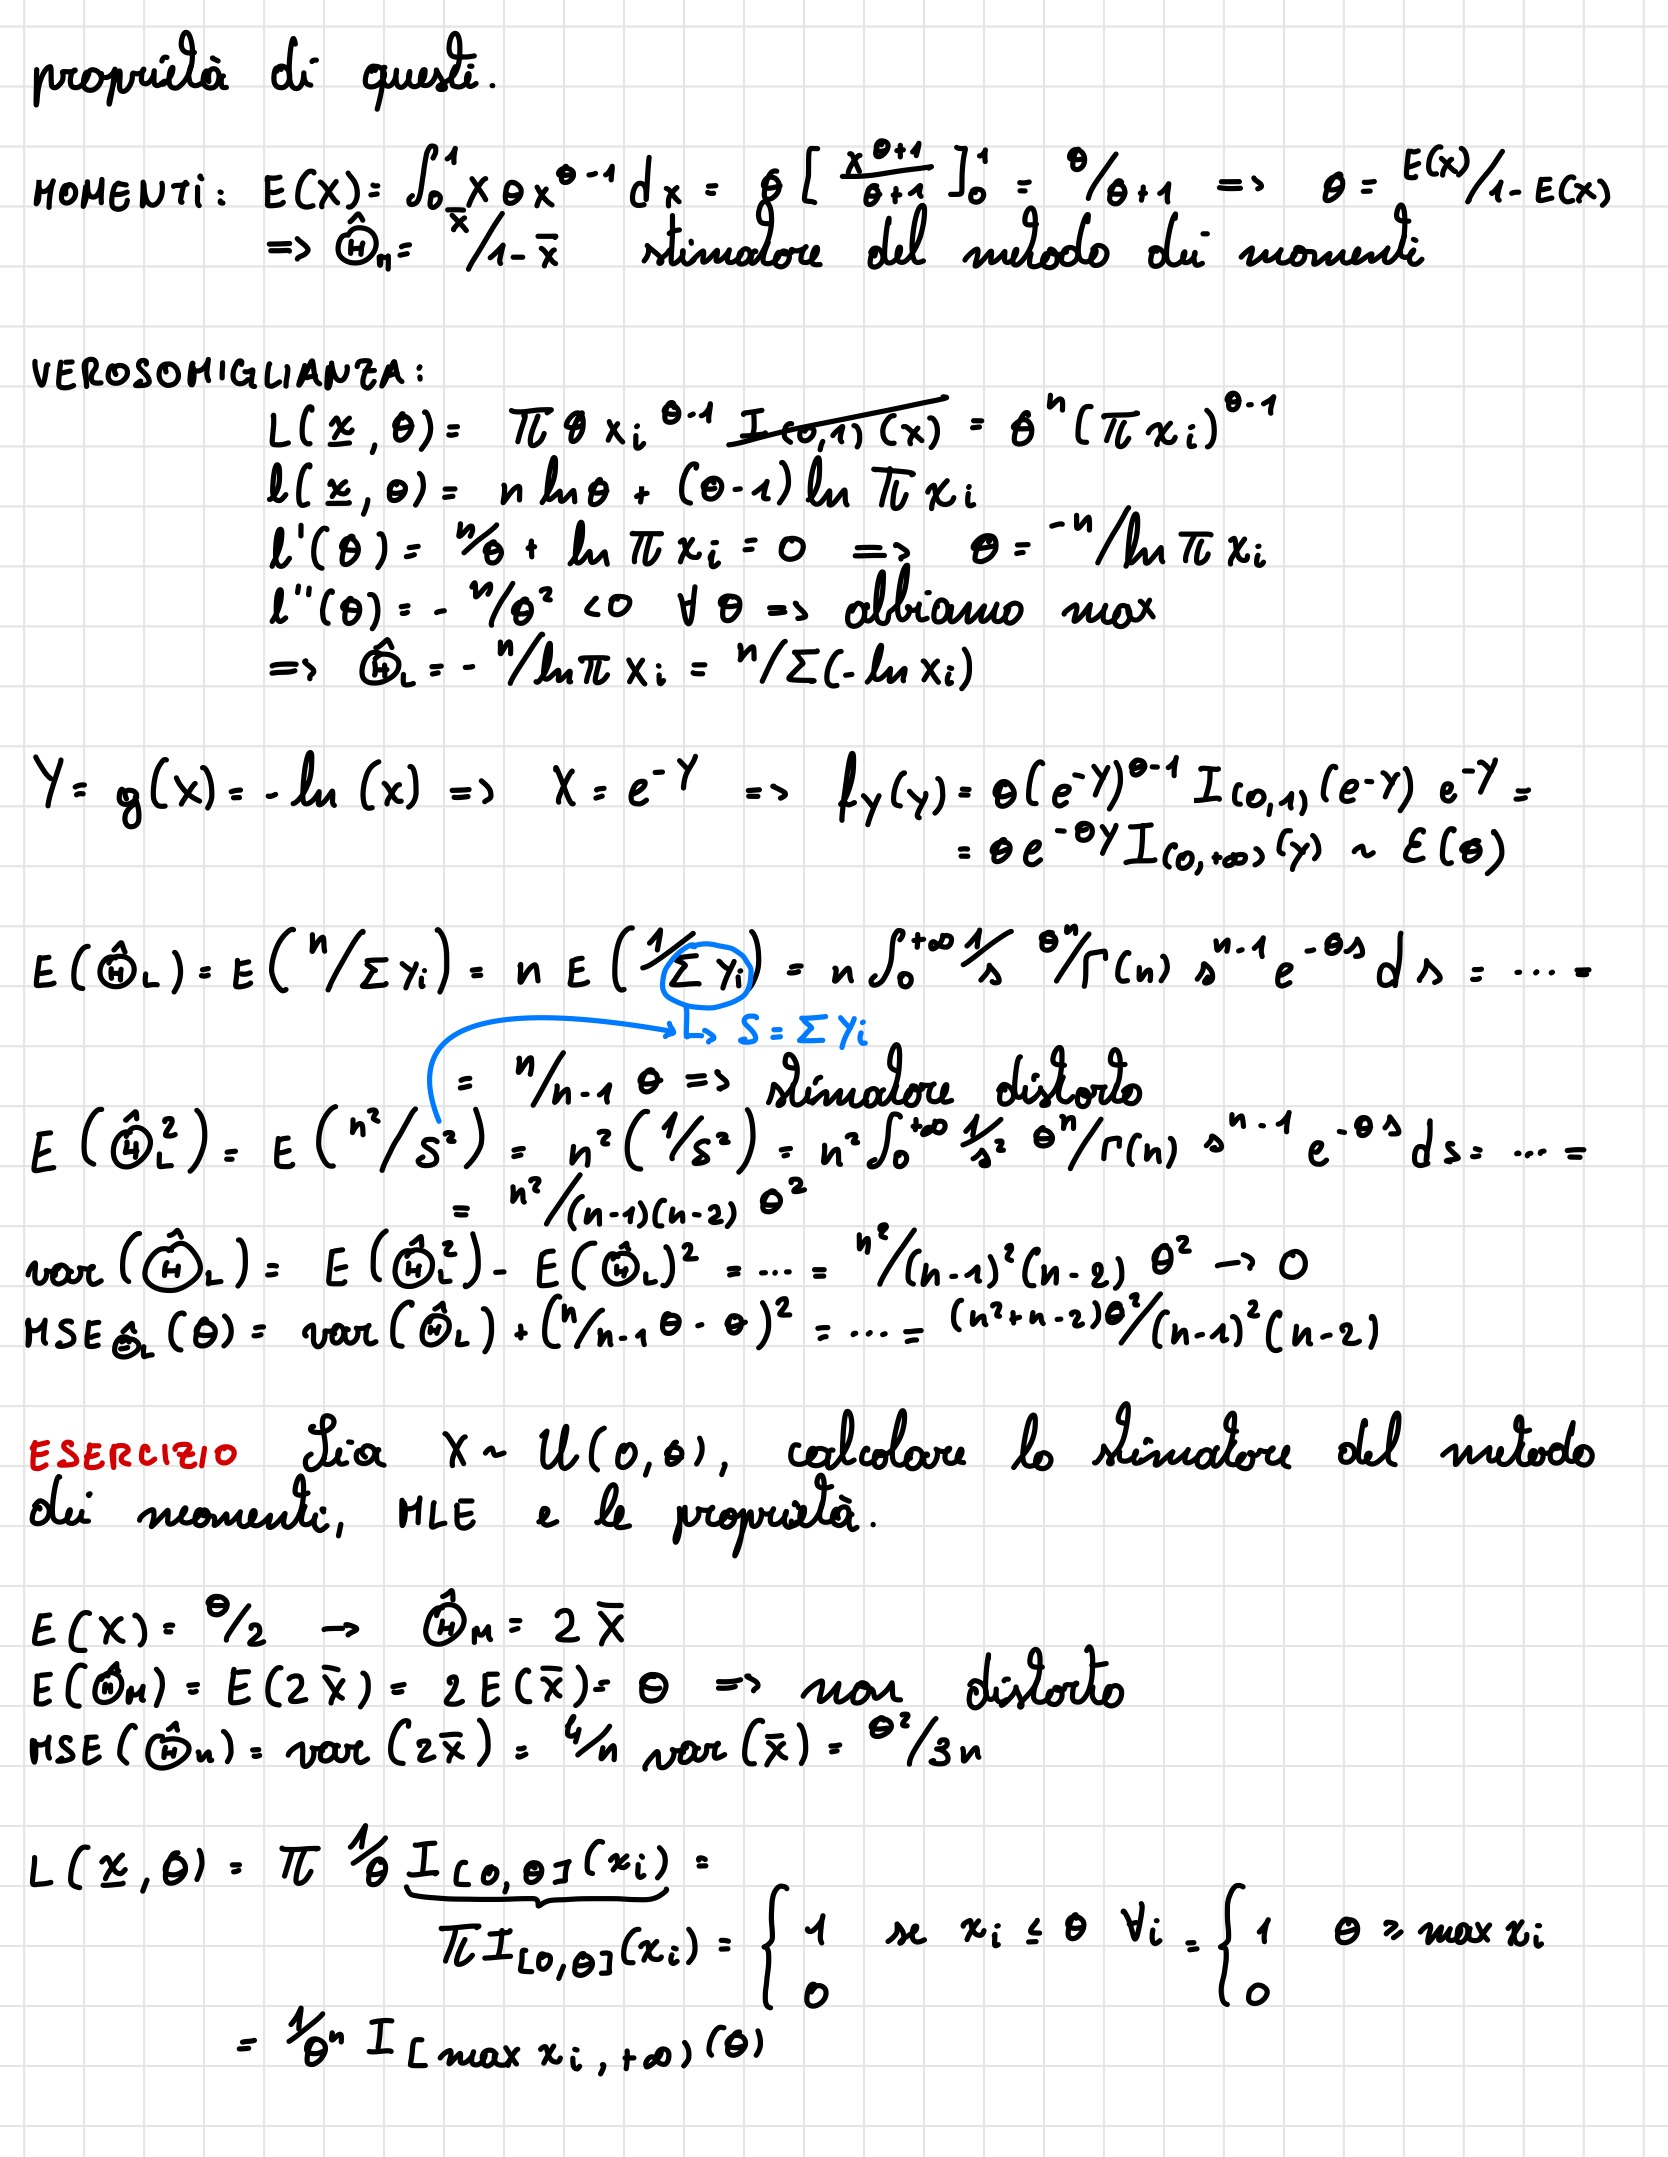 proprietà di questi.
MOMENTI: E(X) = ∫₀¹ x θ x^(θ-1) dx = θ [ x^(θ+1)/(θ+1) ]₀¹ = θ/θ+1 => θ = E(X)/1-E(X)
=> Θ̂_M = x̄/1-x̄ stimatore del metodo dei momenti
VEROSOMIGLIANZA:
L(x̲, θ) = π θ x_i^(θ-1) I_(0,1)(x) = θ^n (π x_i)^(θ-1)
l(x̲, θ) = n ln θ + (θ-1) ln π x_i
l'(θ) = n/θ + ln π x_i = 0 => θ = -n/ln π x_i
l''(θ) = - n/θ² <0 ∀ θ => abbiamo max
=> Θ̂_L = - n/ln π x_i = n/Σ(-ln x_i)
Y = g(X) = -ln (x) => X = e^(-Y) => f_Y(y) = θ(e^(-y))^(θ-1) I_(0,1)(e^(-y)) e^(-y) =
= θ e^(-θy) I_(0,+∞)(y) ~ Ɛ(θ)
E(Θ̂_L) = E(n/Σ y_i) = n E(1/Σ y_i) = n ∫₀^(+∞) 1/s θ^n/Γ(n) s^(n-1) e^(-θs) ds = ... =
↳ S = Σ y_i
= n/n-1 θ => stimatore distorto
E(Θ̂_L²) = E(n²/S²) = n²(1/S²) = n² ∫₀^(+∞) 1/s² θ^n/Γ(n) s^(n-1) e^(-θs) ds = ... =
= n²/(n-1)(n-2) θ²
var(Θ̂_L) = E(Θ̂_L²) - E(Θ̂_L)² = ... = n²/(n-1)²(n-2) θ² → 0
MSE_Θ̂_L (θ) = var(Θ̂_L) + (n/n-1 θ - θ)² = ... = (n²+n-2)θ²/(n-1)²(n-2)
ESERCIZIO Sia X ~ U(0,θ), calcolare lo stimatore del metodo
dei momenti, MLE e le proprietà.
E(X) = θ/2 → Θ̂_M = 2 X̄
E(Θ̂_M) = E(2 x̄) = 2 E(x̄) = θ => non distorto
MSE(Θ̂_M) = var (2x̄) = 4/n var (x̄) = θ²/3n
L(x̲, θ) = π 1/θ I_[0,θ](x_i) =
π I_[0,θ](x_i) = { 1 se x_i ≤ θ ∀i = { 1 θ ≥ max x_i
0 0
= 1/θ^n I_[max x_i, +∞)(θ)